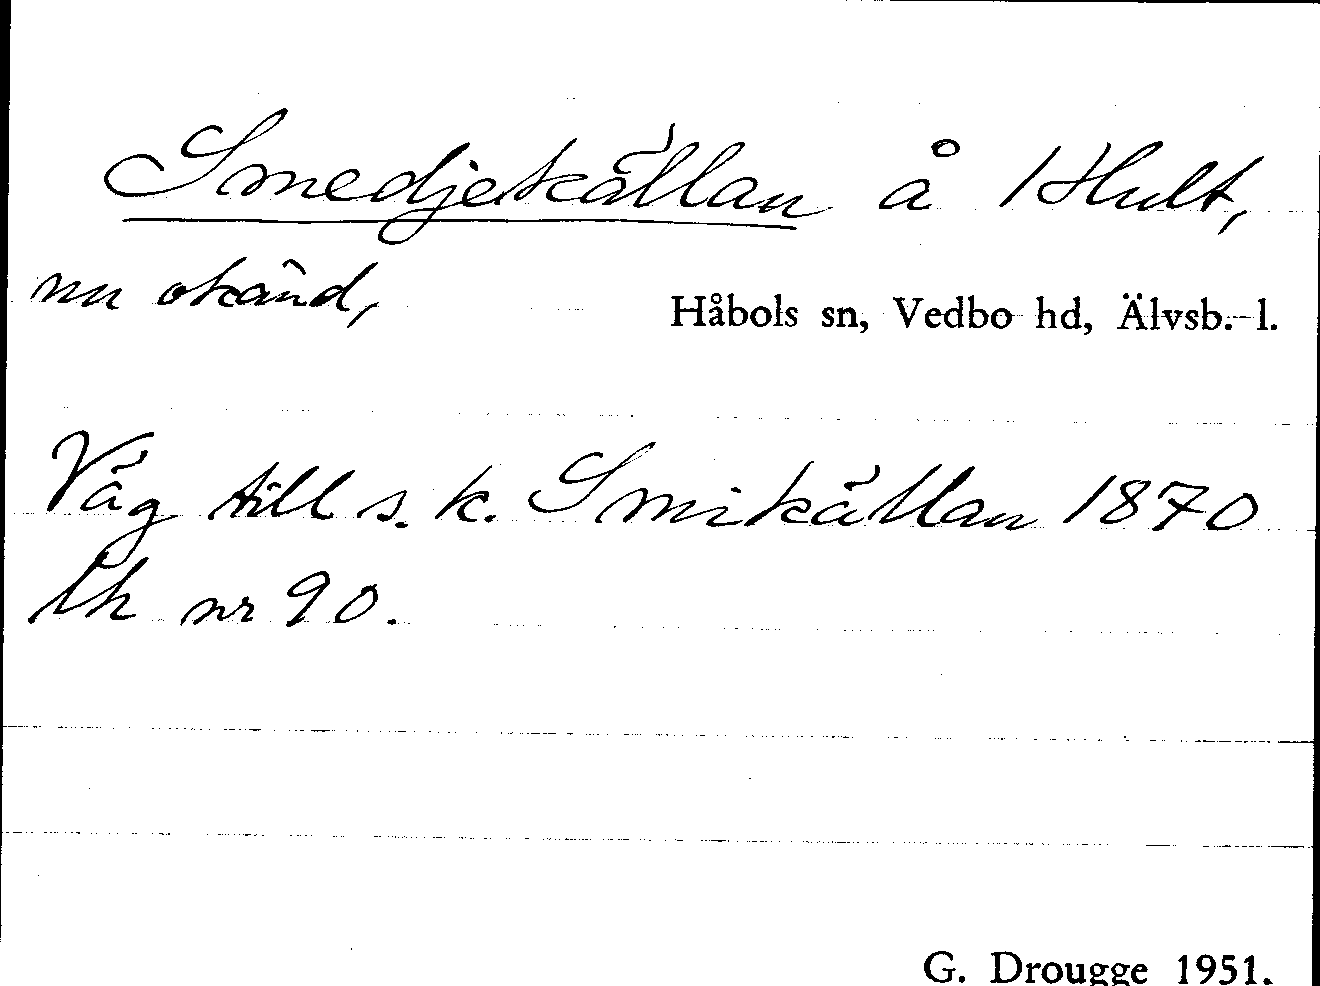 Smedjekällan å Hult,
nu okänd,
Håbols sn, Vedbo hd, Älvsb. l.
Väg till s. k. Smikällan 1870
lh nr 90.
G. Drougge 1951.